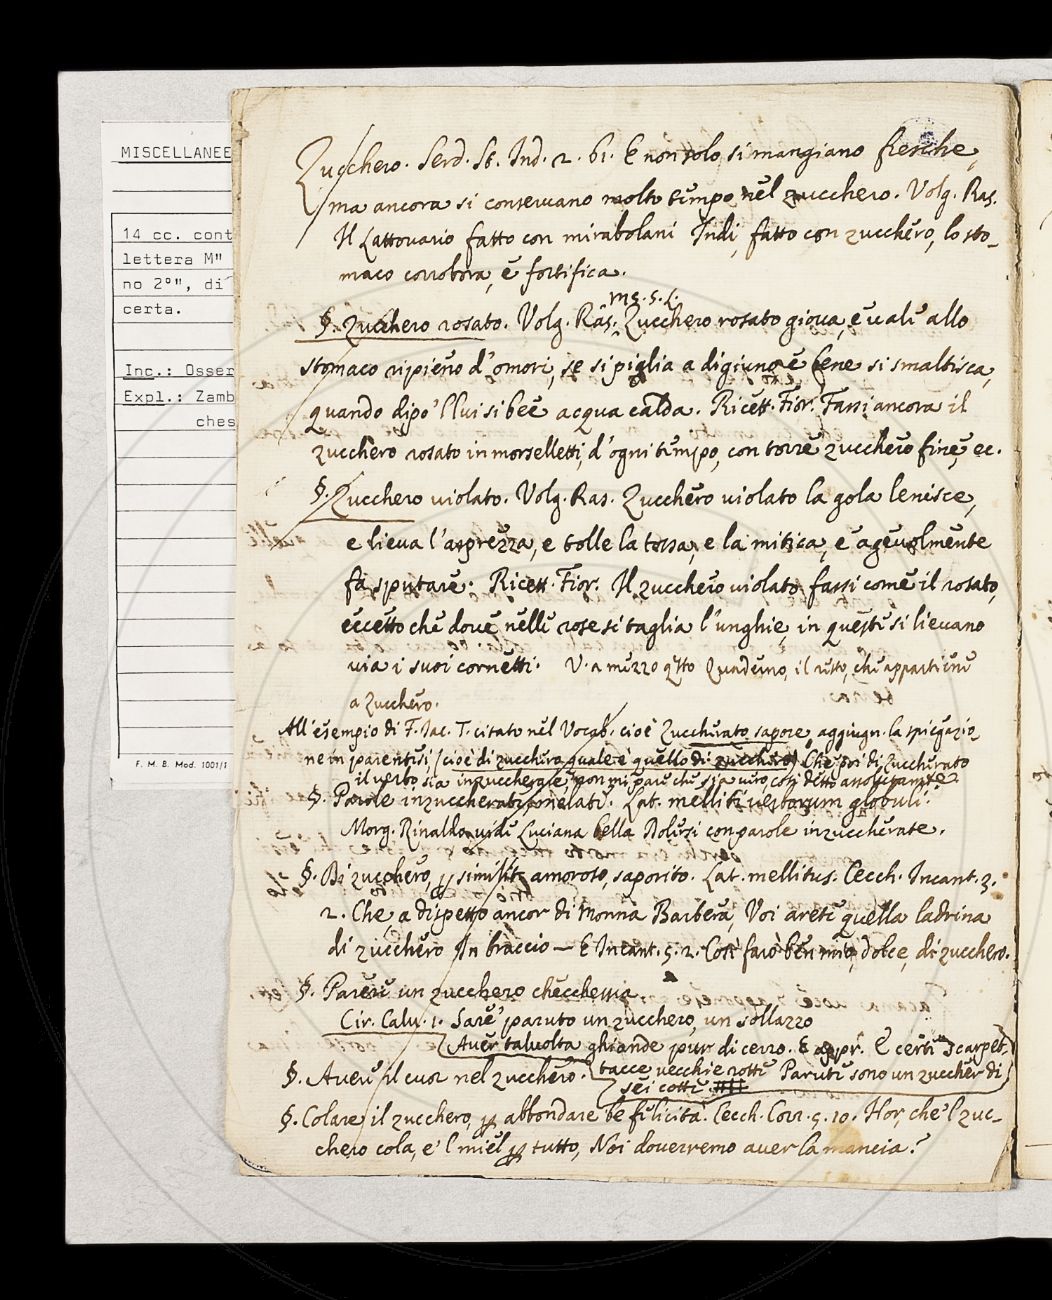 MISCELLANEE
14 cc. cont
lettera M"
no 2°", di
certa.
Inc.: Osser
Expl.: Zamb
ches
F. M. B. Mod. 1001/1
Zucchero. Serd. St. Ind. 2. 61. E non solo si mangiano fresche,
ma ancora si conservano molto tempo nel zucchero. Volg. Ras.
Il Lattovario fatto con mirabolani Indi, fatto con zucchero, lo sto-
maco corrobora, e fortifica.
ms. S. L.
§. Zucchero rosato. Volg. Ras. Zucchero rosato giova, e vali allo
stomaco ripieno d'omori, se si piglia a digiuno e bene si smaltisca,
quando dipo' llui si bee acqua calda. Ricett. Fior. Fassi ancora il
zucchero rosato in morselletti, d'ogni tempo, con torre zucchero fine, ec.
§. Zucchero violato. Volg. Ras. Zucchero violato la gola lenisce,
e lieva l'asprezza, e tolle la tossa, e la mitica, e agevolmente
fa sputare. Ricett. Fior. Il zucchero violato fassi come il rosato,
eccetto che dove nelle rose si taglia l'unghie, in questi si lievano
via i suoi cornetti. V. a mezzo qsto Quaderno, il resto, che appartiene
a zucchero.
All'esempio di F. Jac. T. citato nel Vocab. cioè Zuccherato sapore, aggiugn. la spiegazio
ne in parentesi (cioè di zucchero, quale è quello di zucchero) Che poi di Zuccherato
il verbo sia inzuccherare, non mi pare che sia vero, così detto
§. Parole inzuccherate, melate. Lat. melliti verborum globuli.
Morg. Rinaldo vide Luciana bella Dolersi con parole inzuccherate.
§. Di zucchero, p simil. amoroso, saporito. Lat. mellitus. Cecch. Incant. 3.
2. Che, a dispetto ancor di Monna Barbera, Voi areti quella ladrina
di zucchero In braccio — E Incant. 5. 2. Così farò ben mio, dolce, di zucchero.
§. Parere un zucchero checchessia
Cir. Calv. 1. Sare' paruto un zucchero, un sollazzo
Aver talvolta ghiande pur di cerro. E appr. E certi scarpet
§. Avere il cuor nel zucchero. tacce vecchie rotte Paruti sono un zuccher di
sei cotti
§. Colare il zucchero, p abbondare le felicità. Cecch. Corr. 5. 10. Hor, che 'l zuc-
chero cola, e 'l miel p tutto, Noi doverremo aver la mancia?